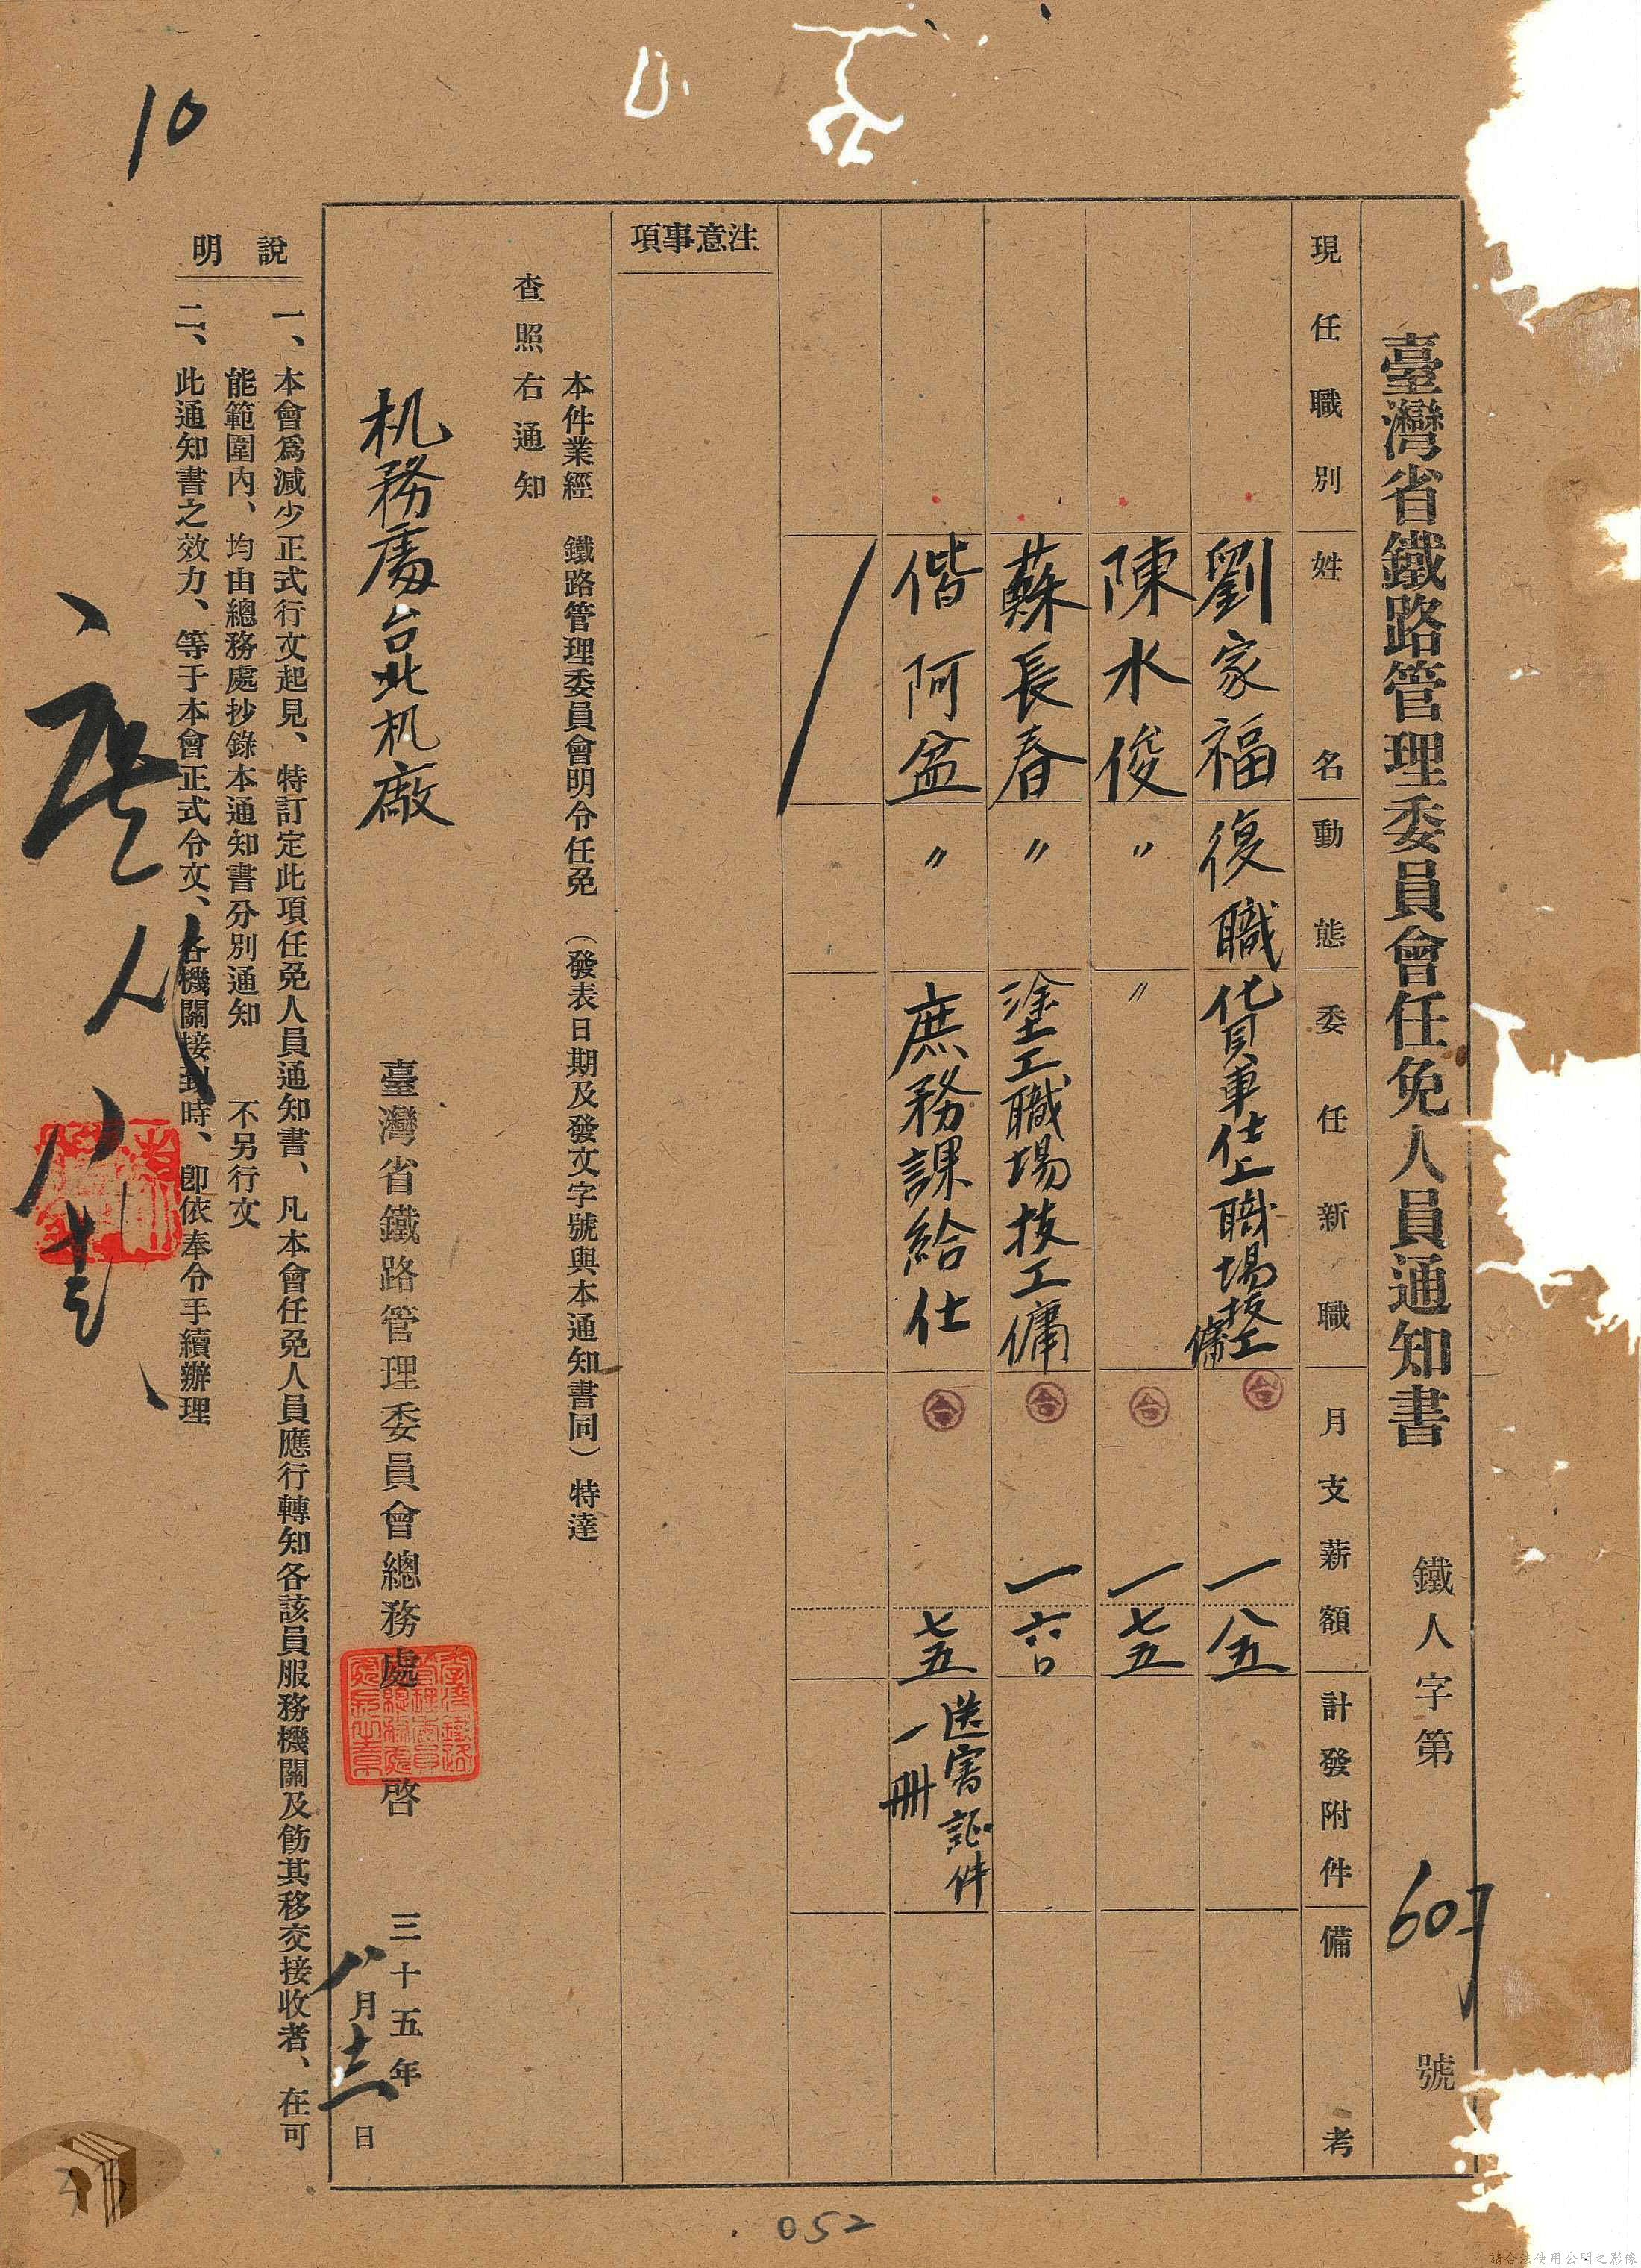 臺灣省鐵路管理委員會任免人員通知書 鐵人字第 607 號
現任職別 姓名 動態 委任新職 月支薪額 計發附件 備考
劉家福 復職 貨車仕上職場技工傭 一八五
陳水俊 〃 〃 一七五
蘇長春 〃 塗工職場技工傭 一六〇
偕阿盆 〃 庶務課給仕 七五 送審証件一冊
注意事項
本件業經 鐵路管理委員會明令任免 (發表日期及發文字號與本通知書同) 特達
查照右通知
机務處台北机廠
臺灣省鐵路管理委員會總務處 啓
三十五年
八月十二日
說明
一、本會爲減少正式行文起見、特訂定此項任免人員通知書、凡本會任免人員應行轉知各該員服務機關及飭其移交接收者、在可
能範圍內、均由總務處抄錄本通知書分別通知 不另行文
二、此通知書之效力、等于本會正式令文、各機關接到時、卽依奉令手續辦理
10
052
請合法使用公開之影像